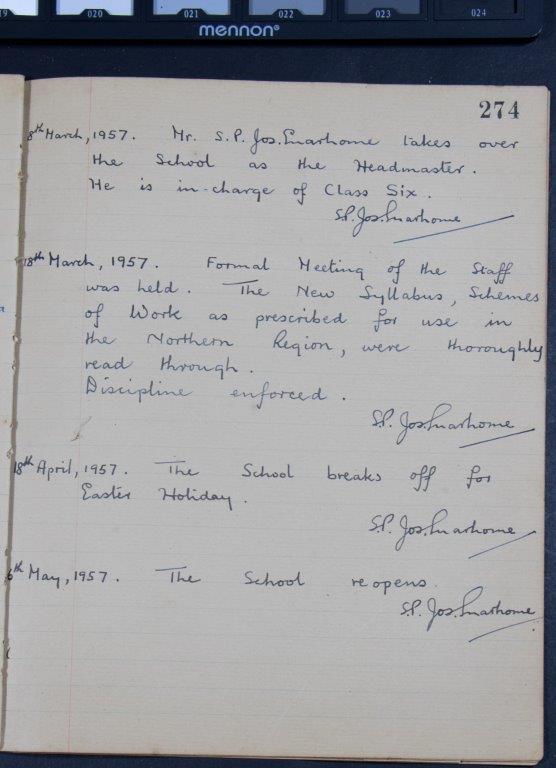 020 021 022 023 024
mennon®
274
8th March, 1957. Mr. S.P. Jos. Enarhome takes over
the School as the Headmaster.
He is in-charge of Class Six.
S.P. Jos. Enarhome
18th March, 1957. Formal Meeting of the Staff
was held. The New Syllabus, Schemes
of Work as prescribed for use in
the Northern Region, were thoroughly
read through.
Discipline enforced.
S.P. Jos. Enarhome
18th April, 1957. The School breaks off for
Easter Holiday.
S.P. Jos. Enarhome
6th May, 1957. The School reopens.
S.P. Jos. Enarhome